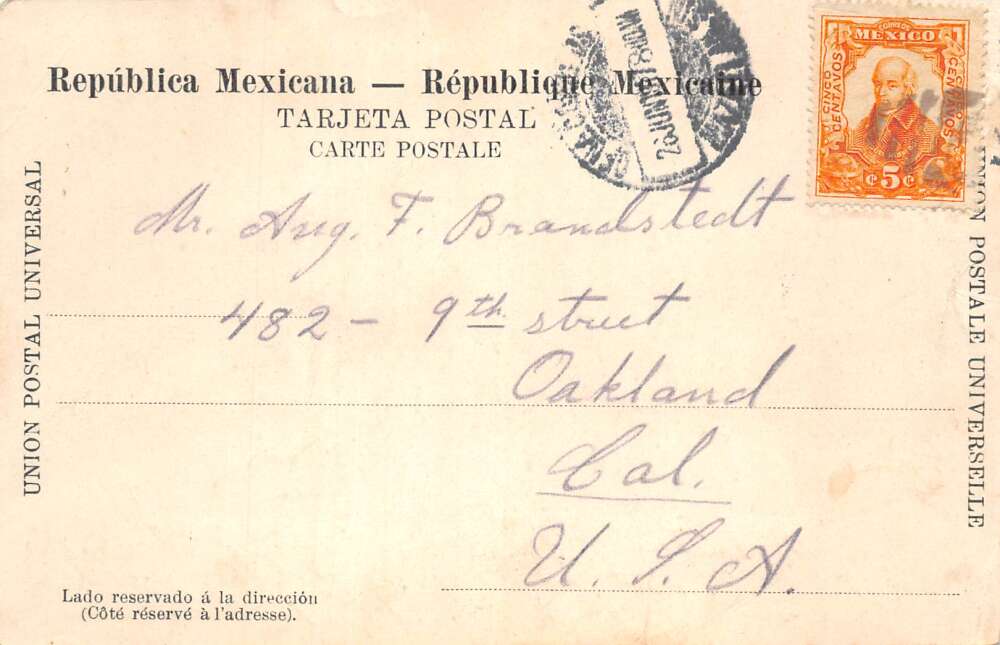 República Mexicana — République Mexicaine
TARJETA POSTAL
CARTE POSTALE
UNION POSTAL UNIVERSAL
UNION POSTALE UNIVERSELLE
CORREOS
MEXICO
CINCO CENTAVOS
CINCO CENTAVOS
¢ 5 ¢
Mr. Aug. F. Brandstedt
482 - 9th street
Oakland
Cal.
U. S. A.
Lado reservado á la dirección
(Côté réservé à l'adresse).